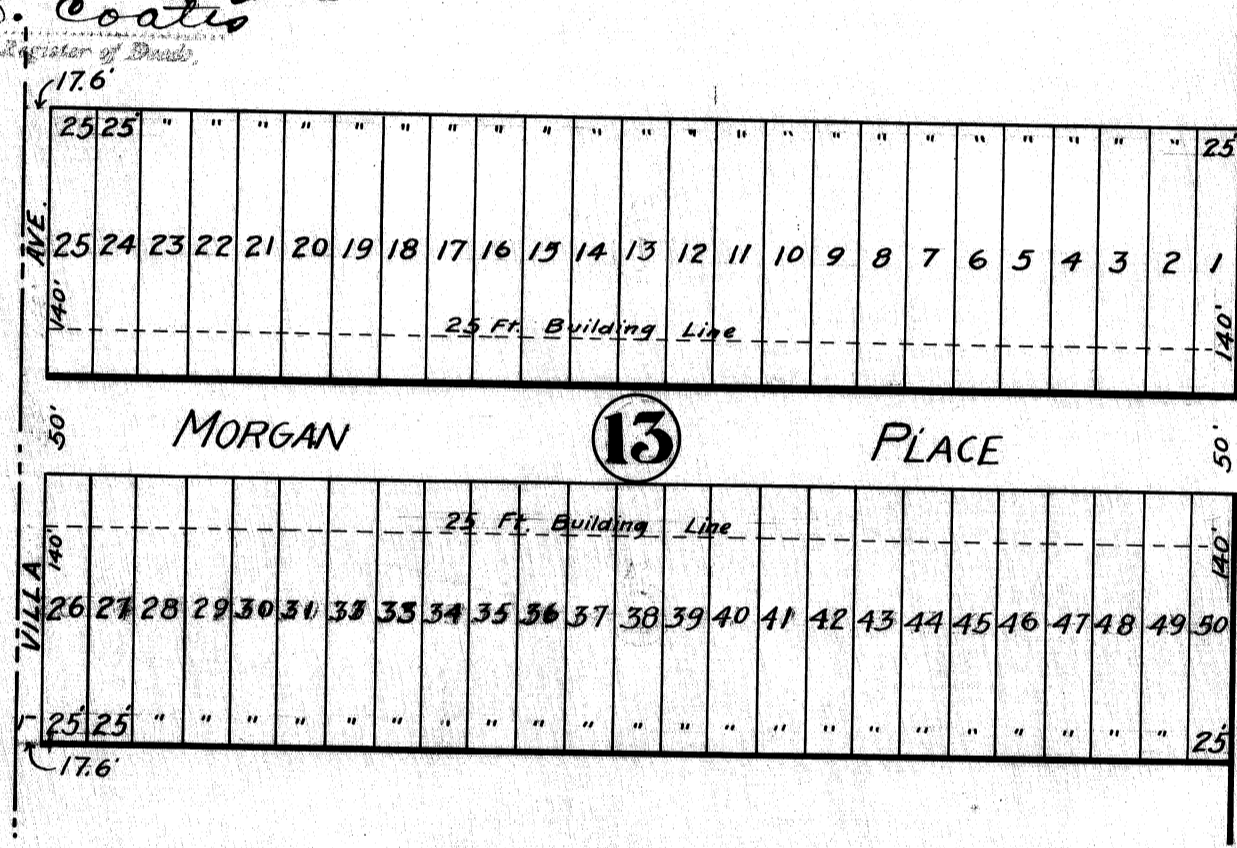 Coates
Register of Deeds,
17.6'
25 25' " " " " " " " " " " " " " " " " " " " " " " 25'
AVE.
25 24 23 22 21 20 19 18 17 16 15 14 13 12 11 10 9 8 7 6 5 4 3 2 1
140' 140'
25 Ft. Building Line
50' MORGAN 13 PLACE 50'
25 Ft. Building Line
140' 140'
VILLA
26 27 28 29 30 31 32 33 34 35 36 37 38 39 40 41 42 43 44 45 46 47 48 49 50
25' 25' " " " " " " " " " " " " " " " " " " " " " " 25'
17.6'